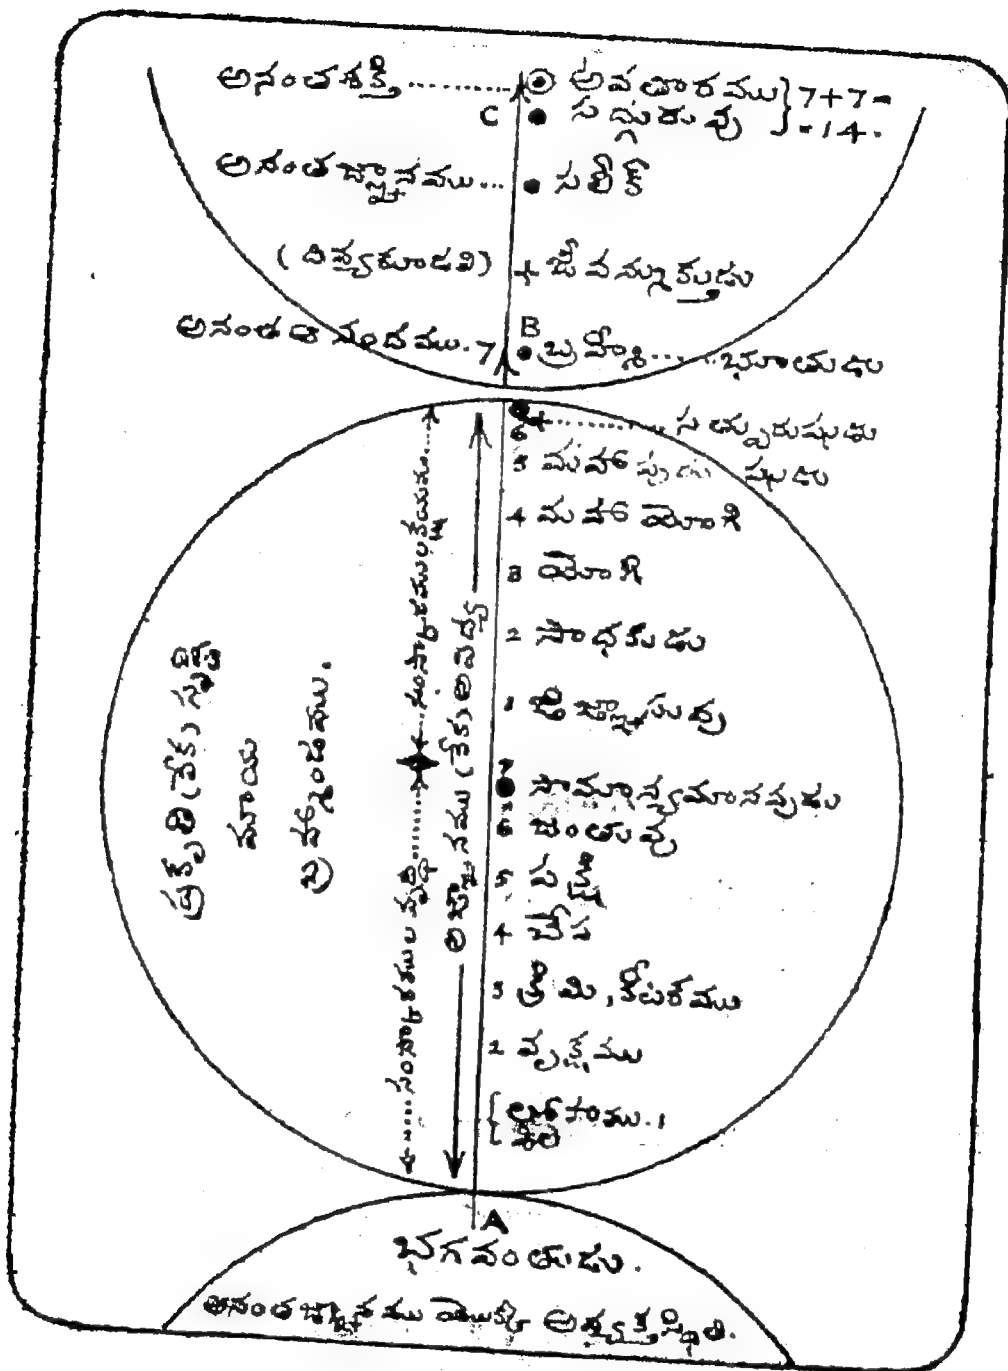 అనంతశక్తి .......... అవతారము } 7+7=
C సద్గురువు } =14.
అనంతజ్ఞానము... సలీక్
(దివ్యకూడలి) + జీవన్ముక్తుడు
B
అనంత ఆనందము. 7 బ్రహ్మీ......భూతుడు
6 ............ సత్పురుషుడు
5 మహాపురుషుడు
4 మహాయోగి
3 యోగి
2 సాధకుడు
1 జిజ్ఞాసువు
7 సామాన్యమానవుడు
6 జంతువు
5 పక్షి
4 చేప
3 క్రిమి, కీటకము
2 వృక్షము
{ లోహము. 1
శిల
ప్రకృతి (లేక) సృష్టి
మాయ
బ్రహ్మాండము.
......సంస్కారముల వృద్ధి.......... సంస్కారములక్షయము....
అజ్ఞానము (లేక) అవిద్య
A
భగవంతుడు.
అనంతజ్ఞానము యొక్క అవ్యక్తస్థితి.